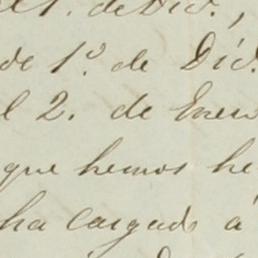 1. de Dic.,
de 1º de Dic.
l 2. de Enero
que hemos he
ha cargado á